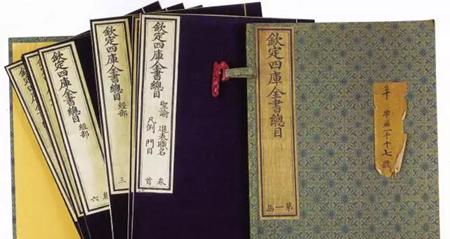 欽定四庫全書總目
經部
卷六
欽定四庫全書總目
經部
三
欽定四庫全書總目
聖諭 進表 職名
凡例 門目
卷首
欽定四庫全書總目
第一函